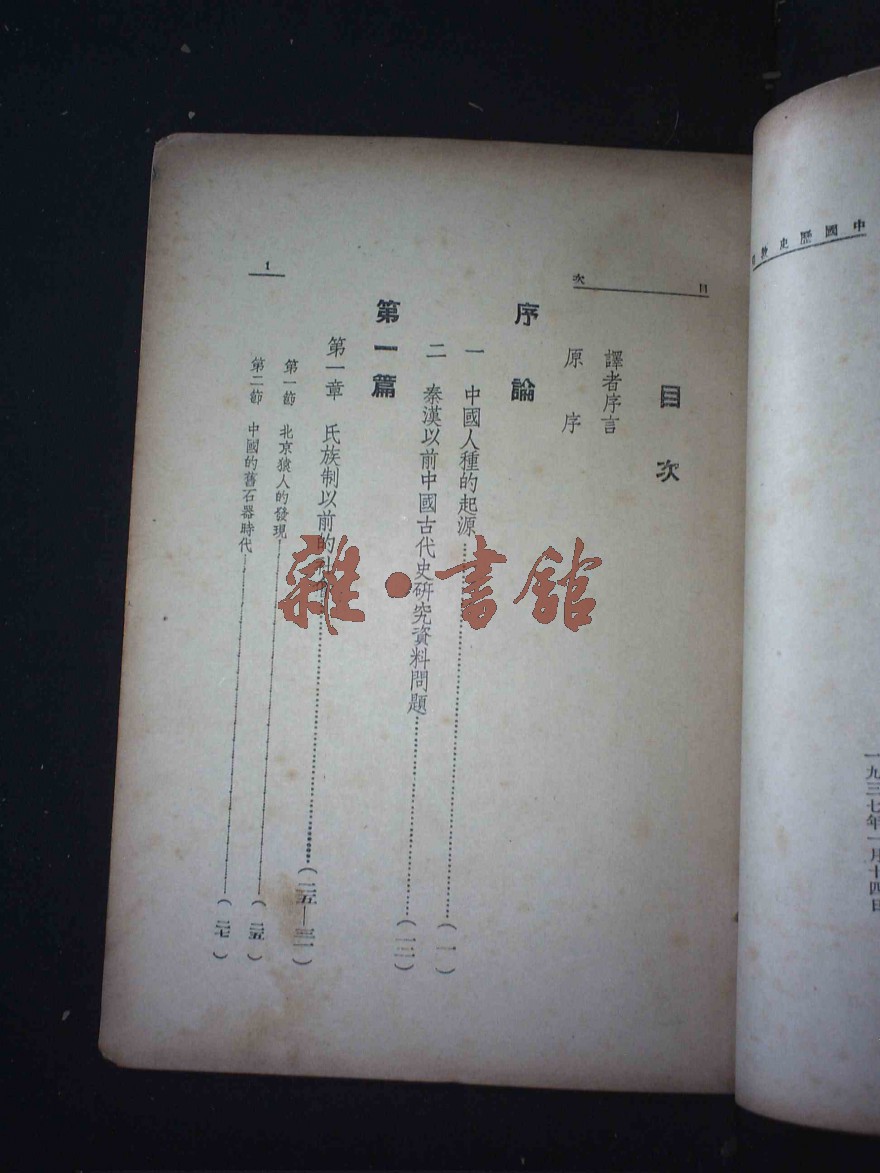 中國歷史教
一九三七年一月十四日
目次
目次
譯者序言
原序
序論
一 中國人種的起源………(一)
二 秦漢以前中國古代史研究資料問題………(一二)
第一篇
第一章 氏族制以前的社………(二五—三一)
第一節 北京猿人的發現………(二五)
第二節 中國的舊石器時代………(二七)
1
雜·書館